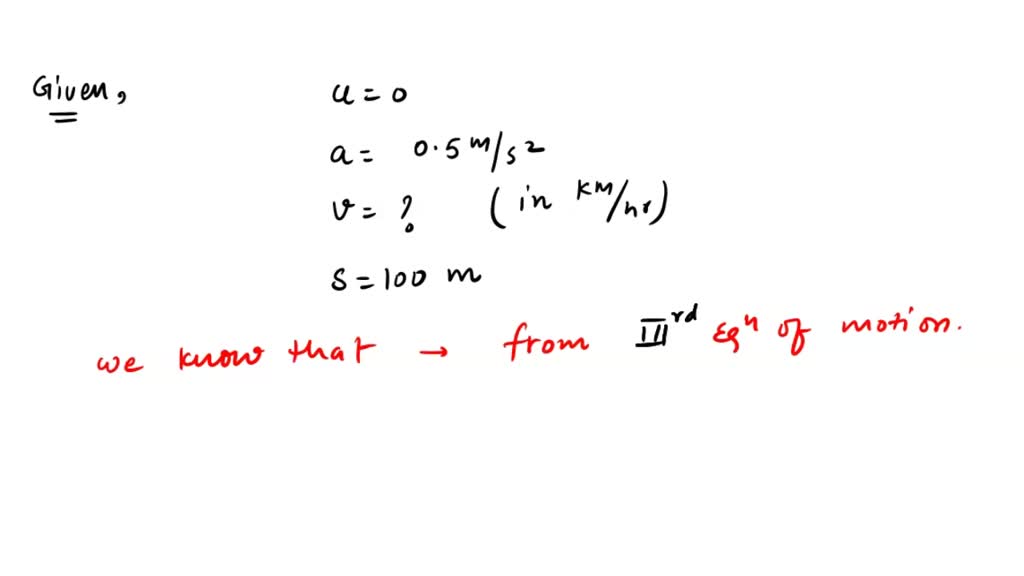 Given,
u = 0
a = 0.5 m/s²
v = ? (in km/hr)
s = 100 m
we know that → from IIIrd Eqⁿ of motion.